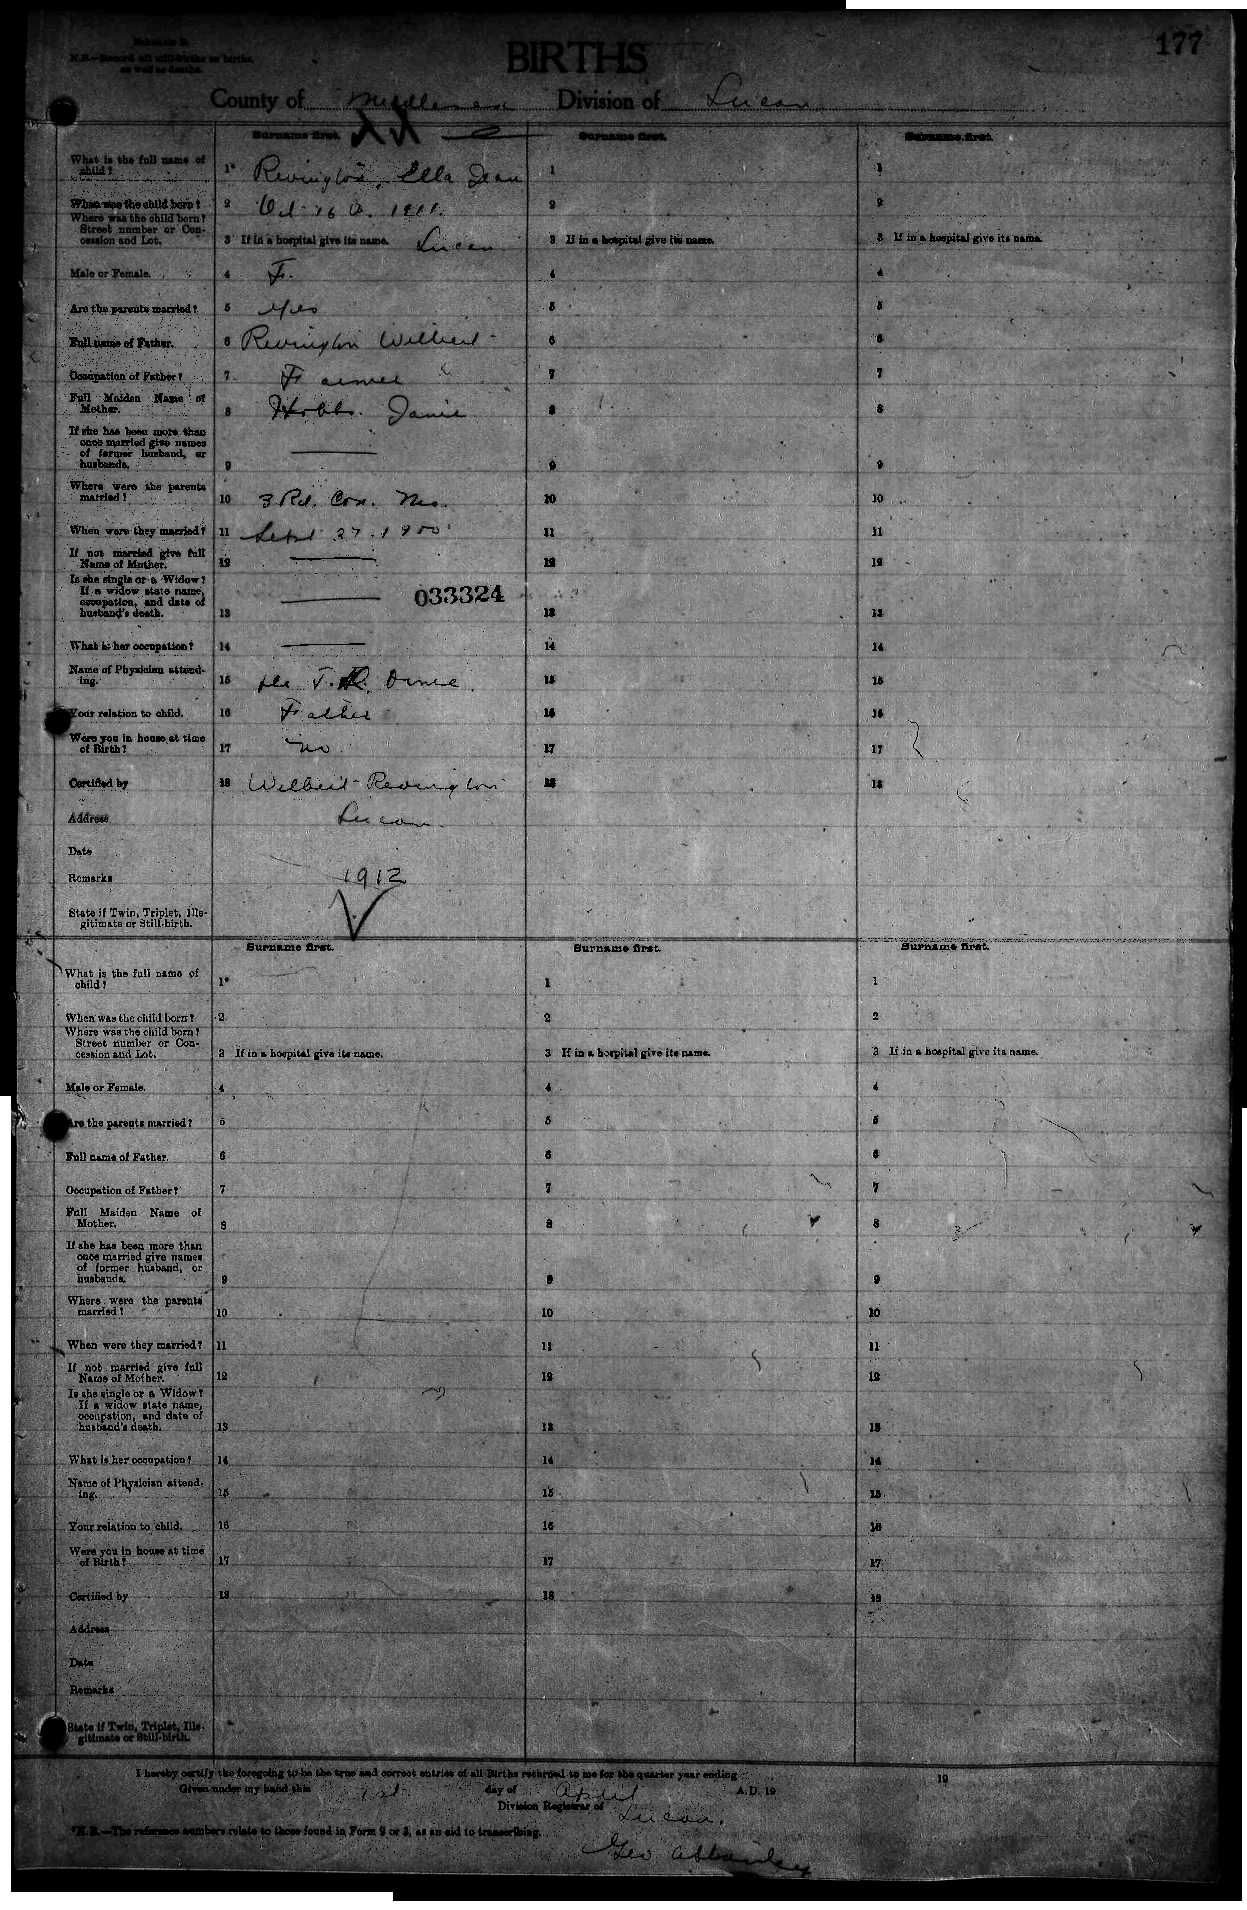 Schedule B.
N.B.—Record all still-births as births,
as well as deaths.
BIRTHS
177
County of Middlesex Division of Lucan
Surname first. Surname first. Surname first.
What is the full name of
child? 1* Revington, Ella Jean 1 1
When was the child born? 2 Oct 16 1911. 2 2
Where was the child born?
Street number or Con-
cession and Lot. 3 If in a hospital give its name. Lucan 3 If in a hospital give its name. 3 If in a hospital give its name.
Male or Female. 4 F. 4 4
Are the parents married? 5 Yes 5 5
Full name of Father. 6 Revington Wilbert 6 6
Occupation of Father? 7 Farmer 7 7
Full Maiden Name of
Mother. 8 Hobbs. Janie 8 8
If she has been more than
once married give names
of former husband, or
husbands. 9 — 9 9
Where were the parents
married? 10 3 Rd. Con. 10 10
When were they married? 11 Sept 27. 1900 11 11
If not married give full
Name of Mother. 12 — 12 12
Is she single or a Widow?
If a widow state name,
occupation, and date of
husband's death. 13 — 033324 13 13
What is her occupation? 14 — 14 14
Name of Physician attend-
ing. 15 T. 15 15
Your relation to child. 16 Father 16 16
Were you in house at time
of Birth? 17 no 17 17
Certified by 18 Wilbert Revington 18 18
Address Lucan.
Date
Remarks 1912
State if Twin, Triplet, Ille-
gitimate or Still-birth.
Surname first. Surname first. Surname first.
What is the full name of
child? 1* 1 1
When was the child born? 2 2 2
Where was the child born?
Street number or Con-
cession and Lot. 3 If in a hospital give its name. 3 If in a hospital give its name. 3 If in a hospital give its name.
Male or Female. 4 4 4
Are the parents married? 5 5 5
Full name of Father. 6 6 6
Occupation of Father? 7 7 7
Full Maiden Name of
Mother. 8 8 8
If she has been more than
once married give names
of former husband, or
husbands. 9 9 9
Where were the parents
married? 10 10 10
When were they married? 11 11 11
If not married give full
Name of Mother. 12 12 12
Is she single or a Widow?
If a widow state name,
occupation, and date of
husband's death. 13 13 13
What is her occupation? 14 14 14
Name of Physician attend-
ing. 15 15 15
Your relation to child. 16 16 16
Were you in house at time
of Birth? 17 17 17
Certified by 18 18 18
Address
Date
Remarks
State if Twin, Triplet, Ille-
gitimate or Still-birth.
I hereby certify the foregoing to be the true and correct entries of all Births returned to me for the quarter year ending 19
Given under my hand this 1st day of April A.D. 19
Division Registrar of Lucan.
*N.B.—The reference numbers relate to those found in Form 2 or 3, as an aid to transcribing.
Geo